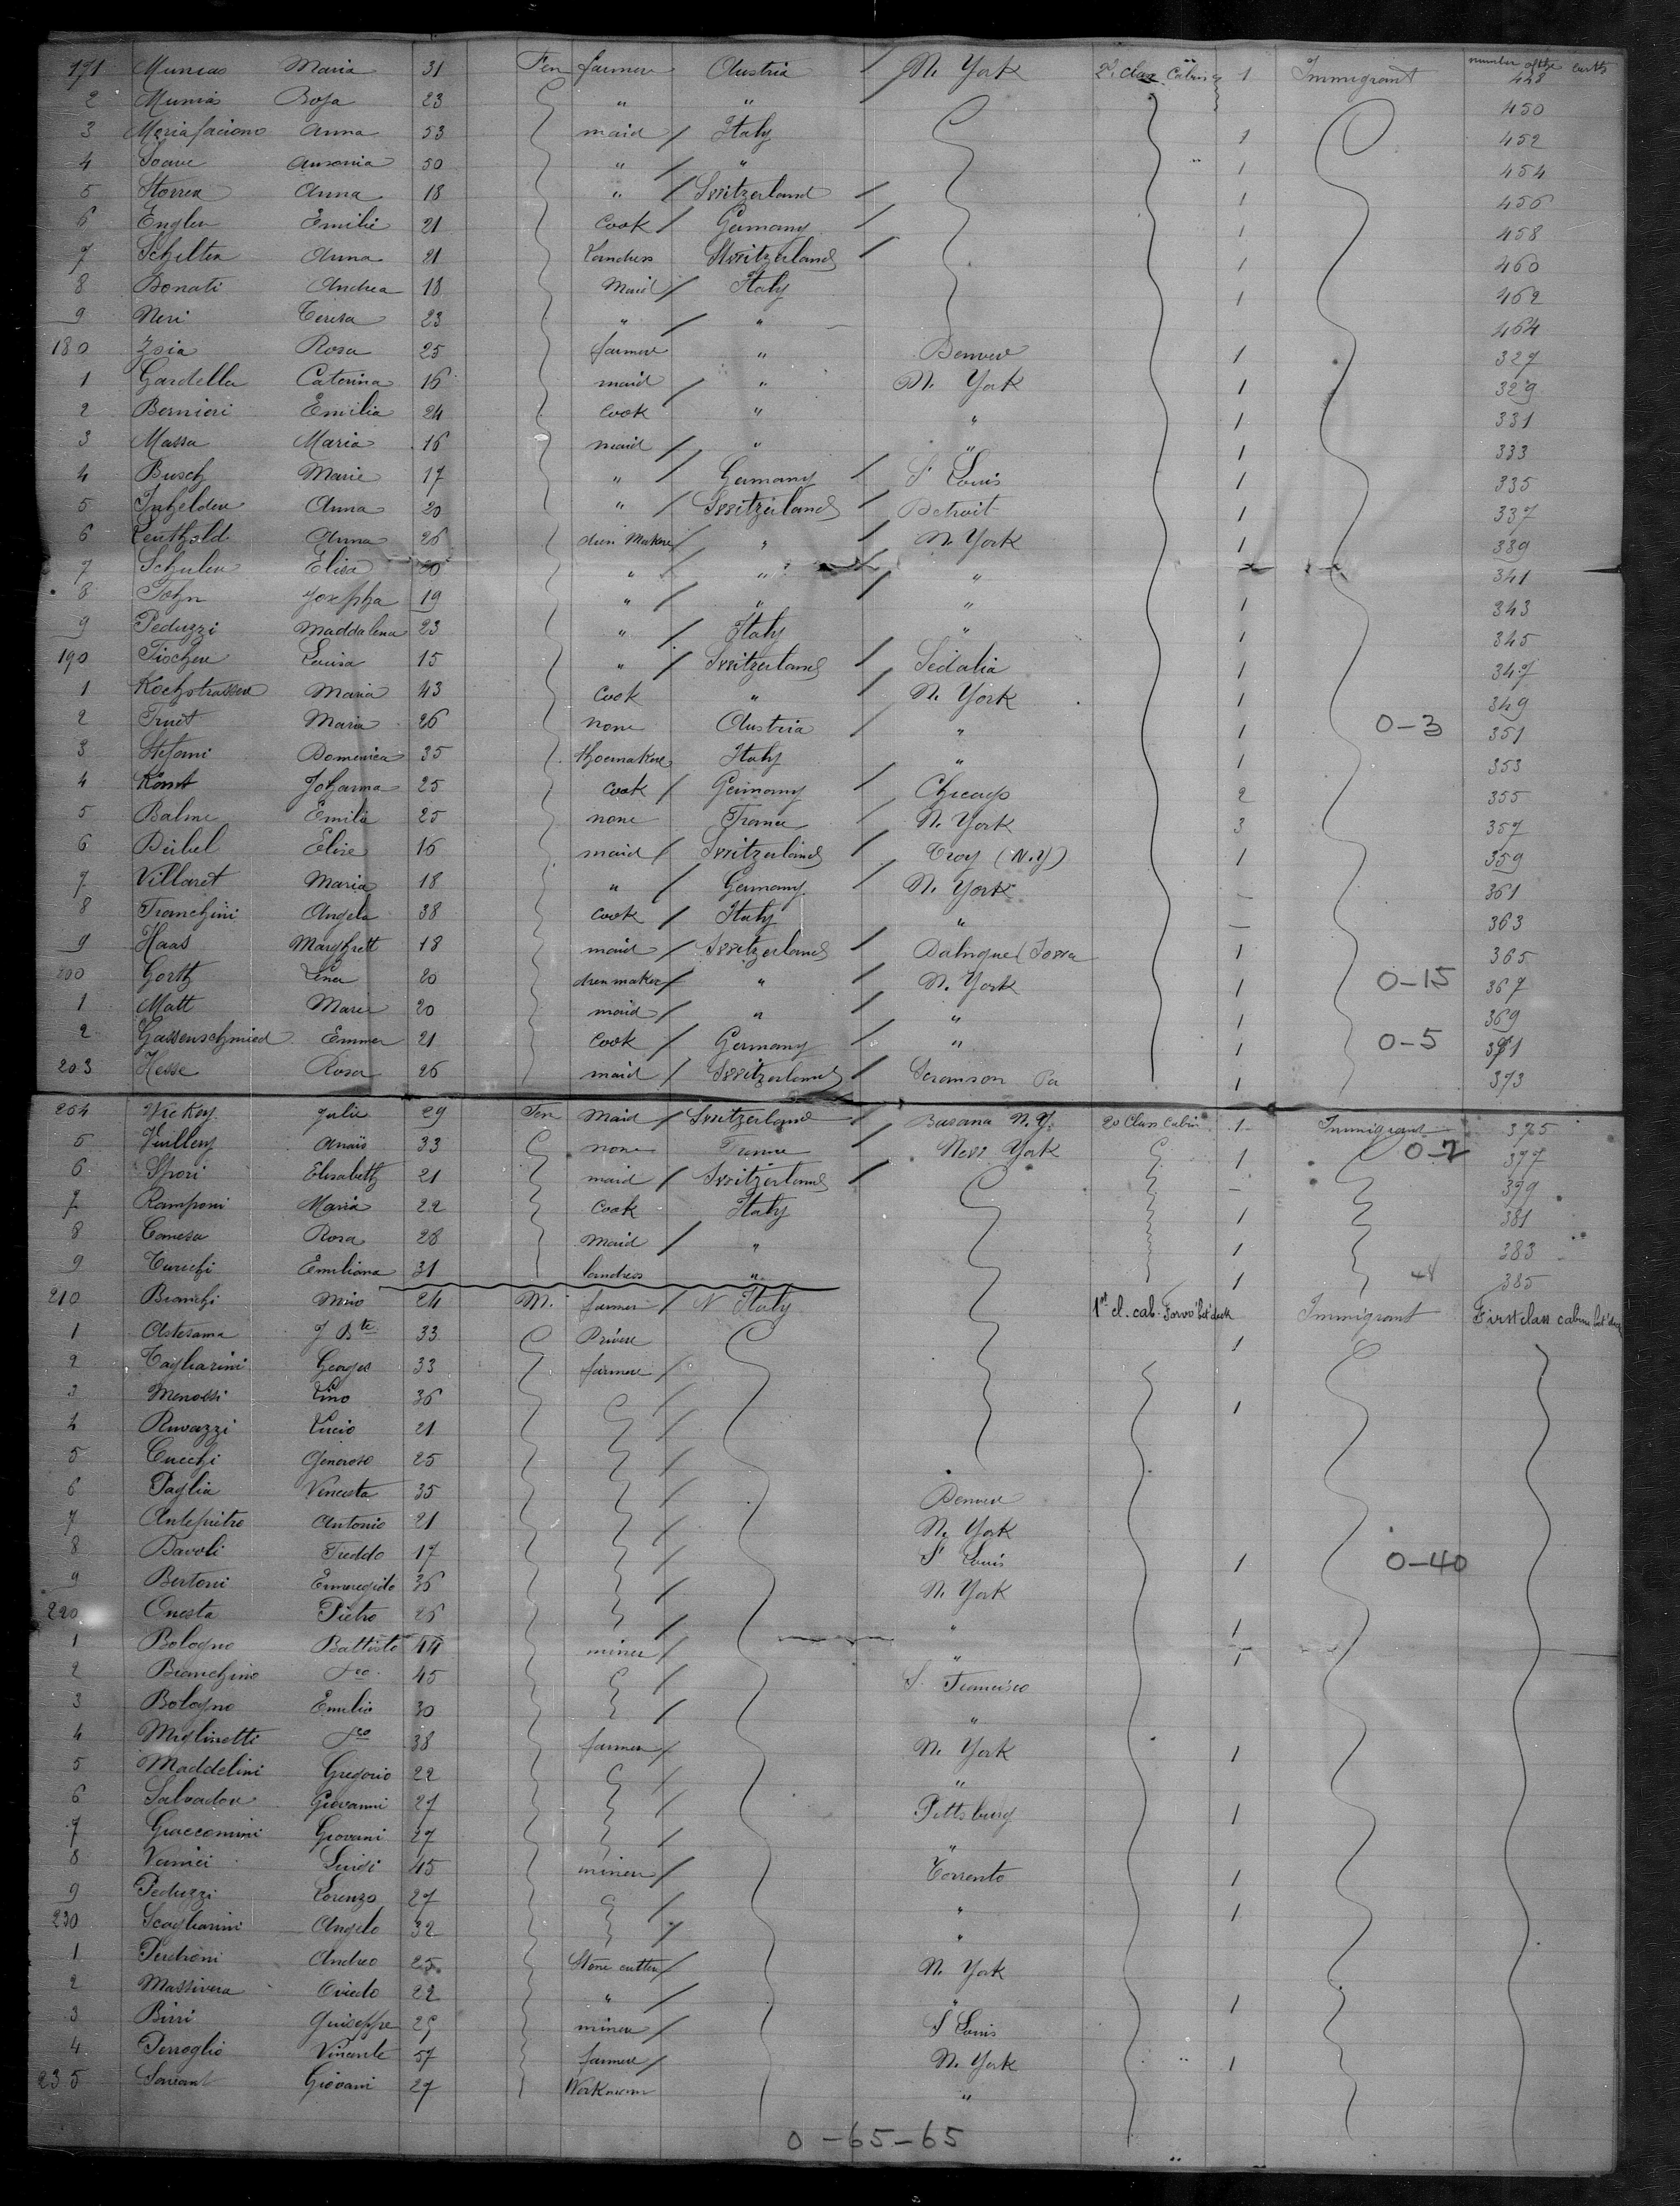 number of the births
171 Munias Maria 31 Fem farmer Austria / N. York 2d Class Cabin 1 Immigrant 448
2 Munias Rosa 23 " " 450
3 Anna 53 maid / Italy 1 452
4 Soave Ausonia 50 " / " 1 454
5 Storrer Anna 18 " / Switzerland / 1 456
6 Engler Emilie 21 Cook / Germany / 1 458
7 Schilter Anna 21 Landress Switzerland / 1 460
8 Bonati Andrea 18 Maid / Italy 1 462
9 Neri Teresa 23 " / " 464
180 Zoia Rosa 25 farmer " Denver 1 327
1 Gardella Caterina 16 maid / " N. York 1 329
2 Bernieri Emilia 24 cook " " 1 331
3 Massa Maria 16 maid / " " 1 333
4 Busch Marie 17 " / Germany / St Louis 1 335
5 Inhelder Anna 20 " / Switzerland / Detroit 1 337
6 Leuthold Anna 26 dress Maker / " / N. York 1 339
7 Schuler Elisa 20 " / " / " 1 341
8 John Josepha 19 " / " / " 1 343
9 Peduzzi Maddalena 23 " / Italy " 1 345
190 Fischer Louisa 15 " / Switzerland / Sedalia 1 347
1 Kochstrasser Maria 43 Cook " / N. York 1 349
2 Truet Maria 26 none Austria / " 1 0-3 351
3 Stefani Domenica 35 Shoemaker Italy " 1 353
4 Konst Johanna 25 Cook / Germany / Chicago 2 355
5 Balme Emilie 25 none France N. York 3 357
6 Deibel Elise 16 maid / Switzerland / Troy (N.Y) 1 359
7 Villaret Maria 18 " / Germany / N. York - 361
8 Franchini Angela 38 Cook / Italy " - 363
9 Haas Marghrett 18 maid / Switzerland / Dabuque (Iowa 1 365
200 Gortz Lina 20 dress maker / " / N. York 1 0-15 367
1 Matt Marie 20 maid / " / " 1 369
2 Gassenschmied Emmer 21 Cook / Germany " 1 0-5 371
203 Hesse Rosa 26 maid / Switzerland / Scranson Pa 1 373
204 Vickey Julie 29 Fem Maid / Switzerland / N.Y. 2d Class Cabin 1 Immigrant 375
5 Vuilley Anais 33 none France / New York 1 0-2 377
6 Spori Elisabeth 21 maid / Switzerland / - 379
7 Ramponi Maria 22 Cook Italy 1 381
8 Canesa Rosa 28 Maid / " 1 383
9 Turichi Emiliana 31 landress " 1 48 385
210 Bianchi Mario 24 M. farmer / N Italy 1st cl. cab. Forw'd bet' deck Immigrant First class cabin bet' deck
1 Astesana J Bte 33 Priese 1
2 Tagliarini Georges 33 farmer
3 Menossi Lino 36 / 1
4 Ruvazzi Lucio 21 /
5 Cucchi Generoso 25 /
6 Paglia Vincesta 35 / Denver
7 Antepietro Antonio 21 / N. York
8 Davoli Freddo 17 / St Louis 1 0-40
9 Bertoni Ermenegido 36 / N. York
220 Onesta Pietro 26 / " 1
1 Bologno Battista 44 miner / " 1
2 Bianchino Fco 45 / S. Francisco
3 Bologno Emilio 30 / "
4 Miglinetti Fco 38 farmer / N. York 1
5 Maddelini Gregorio 22 / "
6 Salvadore Giovanni 27 / Pittsburg 1
7 Giaccomini Giovani 27 / "
8 Vanici Luigi 45 miner / Torrento 1
9 Peduzzi Lorenzo 27 / " 1
230 Scagliarini Angelo 32 / "
1 Pedroni Andreo 25 Stone cutter / N. York
2 Massivera Oviedo 22 " / " 1
3 Birri Guiseppe 29 miner / St Louis
4 Perroglio Vincente 57 farmer / N. York 1
235 Giovani 27 Workman "
0-65-65